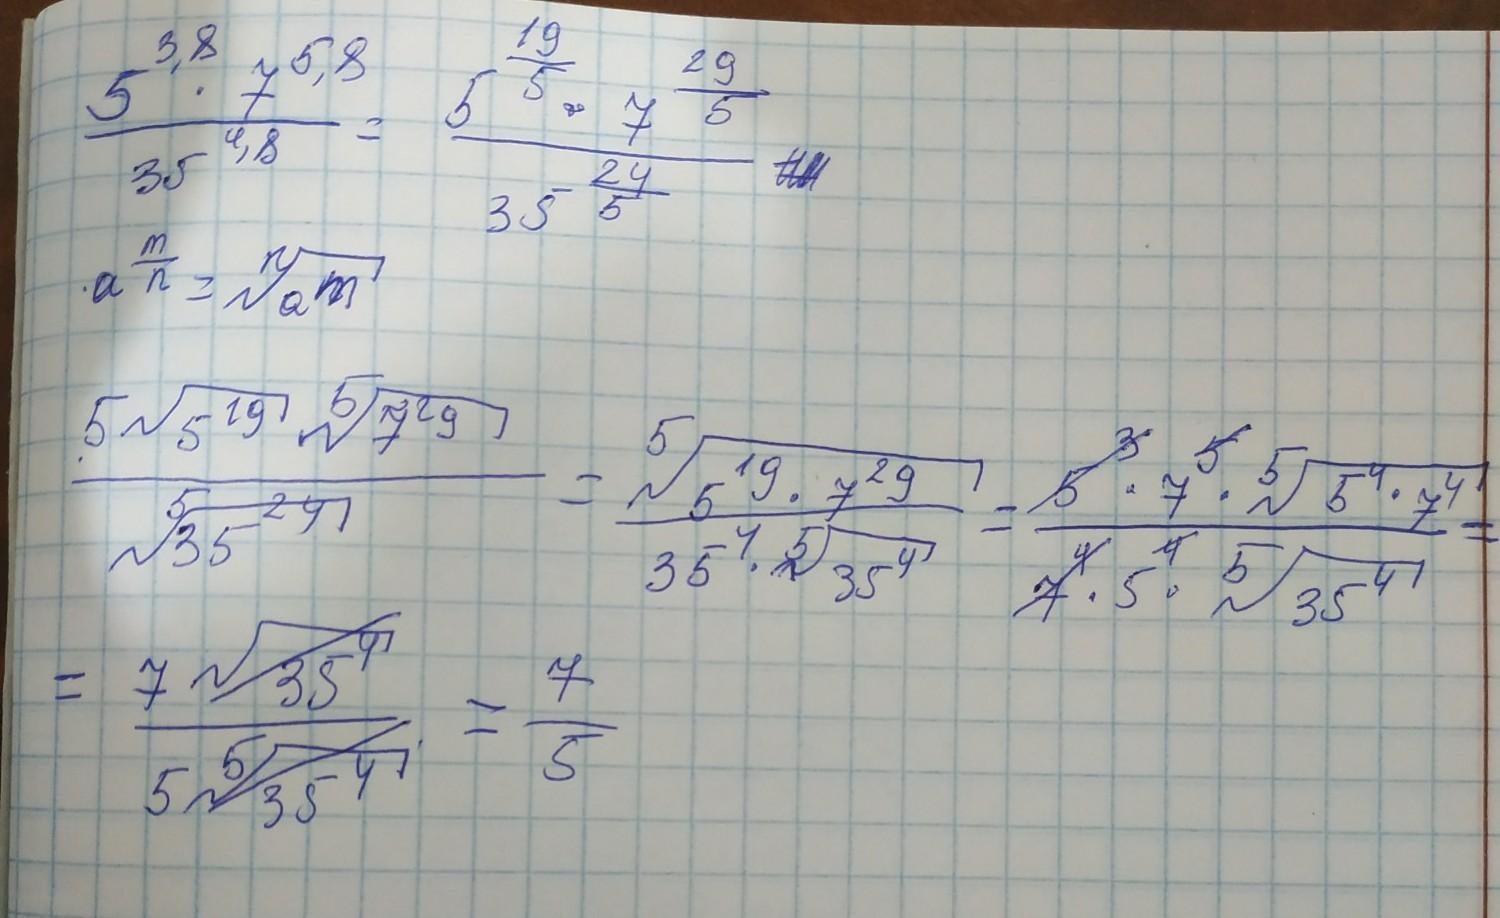 5^{3,8} · 7^{5,8} / 35^{4,8} = 5^{19/5} · 7^{29/5} / 35^{24/5}
· a^{m/n} = \sqrt[n]{a^m}
\sqrt[5]{5^{19}} · \sqrt[5]{7^{29}} / \sqrt[5]{35^{24}} = \sqrt[5]{5^{19} · 7^{29}} / 35^4 · \sqrt[5]{35^4} = 5^3 · 7^5 · \sqrt[5]{5^4 · 7^4} / 7^4 · 5^4 · \sqrt[5]{35^4} =
= 7 \sqrt{35^4} / 5 \sqrt[5]{35^4} = 7 / 5